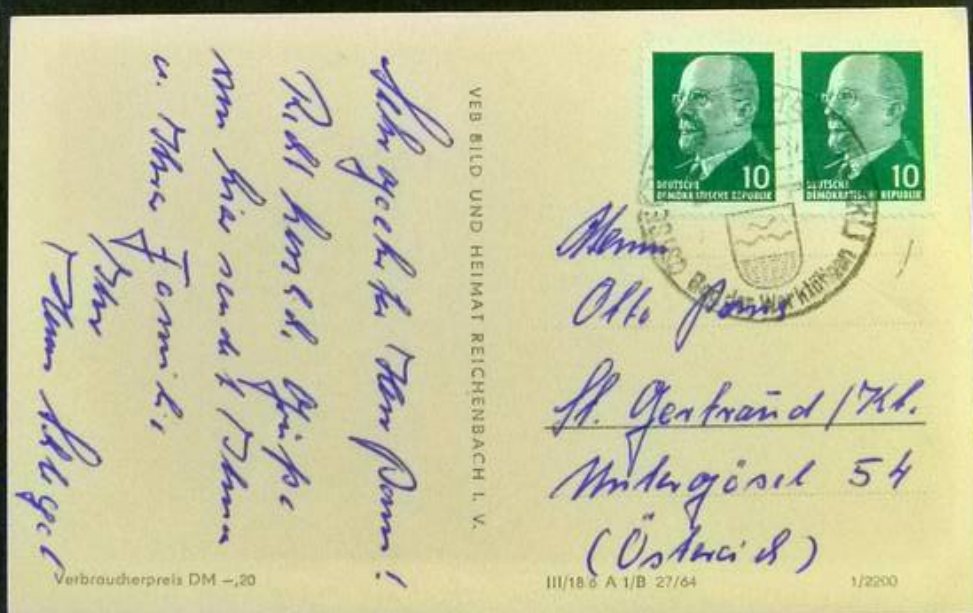 Sehr geehrter Herr
Recht herzl. Grüße
von hier sendet Ihnen
u. Ihrer Familie,
Ihr
VEB BILD UND HEIMAT REICHENBACH I. V.
10
DEUTSCHE
DEMOKRATISCHE REPUBLIK
10
DEUTSCHE
DEMOKRATISCHE REPUBLIK
Bad der Werktätigen
Herrn
Otto
St. Gertraud / Kt.
Untergösel 54
(Österreich)
Verbraucherpreis DM –,20
III/18 6 A 1/B 27/64
1/2200